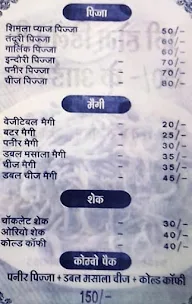 पिज्जा
शिमला प्याज पिज्जा 50/-
तंदूरी पिज्जा 60/-
गार्लिक पिज्जा 60/-
इन्दौरी पिज्जा 70/-
पनीर पिज्जा 70/-
चीज पिज्जा 80/-
मैगी
वेजीटेबल मैगी 20/-
बटर मैगी 25/-
पनीर मैगी 30/-
डबल मसाला मैगी 35/-
चीज मैगी 35/-
डबल चीज मैगी 45/-
शेक
चॉकलेट शेक 30/-
ओरियो शेक 40/-
कोल्ड कॉफी 40/-
कोम्बो पैक
पनीर पिज्जा + डबल मसाला चीज + कोल्ड कॉफी
150/-